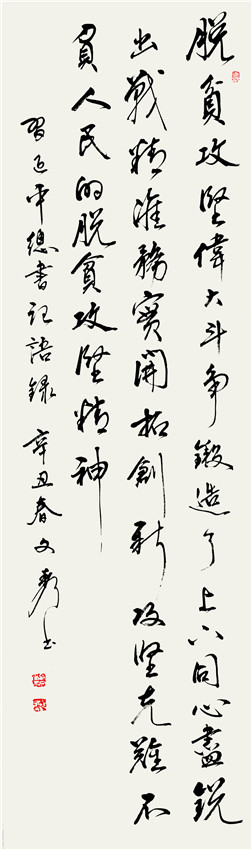 脱貧攻堅偉大斗争鍛造了上下同心盡銳
出戰精准務實開拓創新攻堅克難不
負人民的脱貧攻堅精神
習近平總書記語録 辛丑春文書